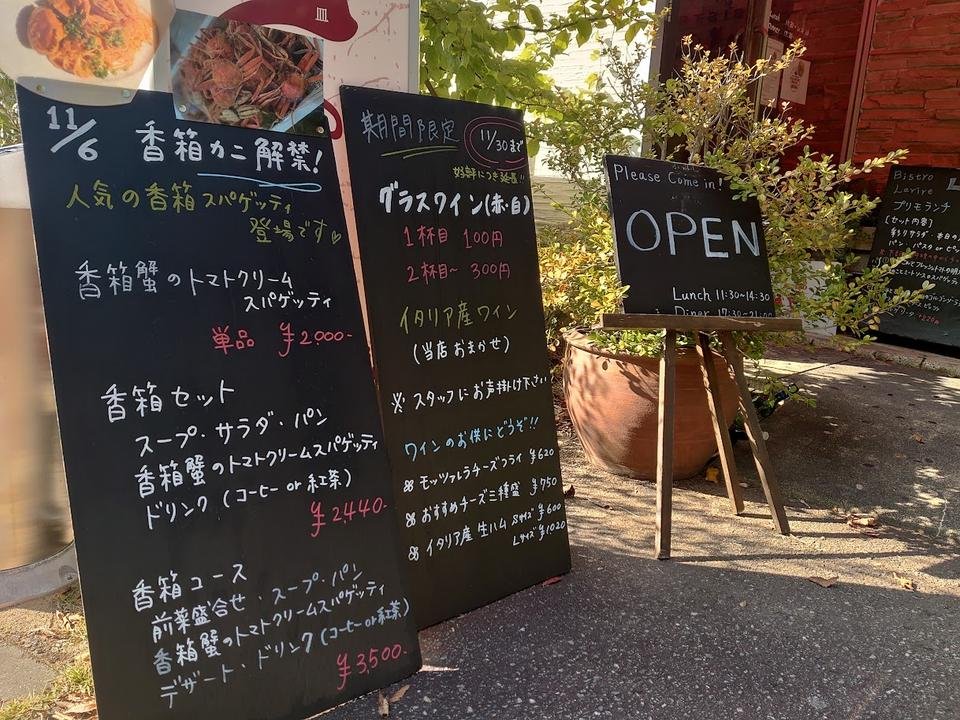 皿
11/6 香箱カニ解禁!
人気の香箱スパゲッティ
登場です♡
香箱蟹のトマトクリーム
スパゲッティ
単品 ¥2.000-
香箱セット
スープ・サラダ・パン
香箱蟹のトマトクリームスパゲッティ
ドリンク (コーヒー or 紅茶)
¥2,440-
香箱コース
前菜盛合せ・スープ・パン
香箱蟹のトマトクリームスパゲッティ
デザート・ドリンク (コーヒー or 紅茶)
¥3,500-
期間限定 11/30まで
好評につき延長!!
グラスワイン(赤・白)
1杯目 100円
2杯目~ 300円
イタリア産ワイン
(当店おまかせ)
※ スタッフにお声掛け下さい
ワインのお供にどうぞ!!
モッツァレラチーズフライ ¥620
おすすめチーズ三種盛 ¥750
イタリア産 生ハム Sサイズ ¥600
Lサイズ ¥1020
Please Come in!
OPEN
Lunch 11:30~14:30
Diner 17:30~21:00
Bistro
Lavire
プリモランチ
[セット内容]